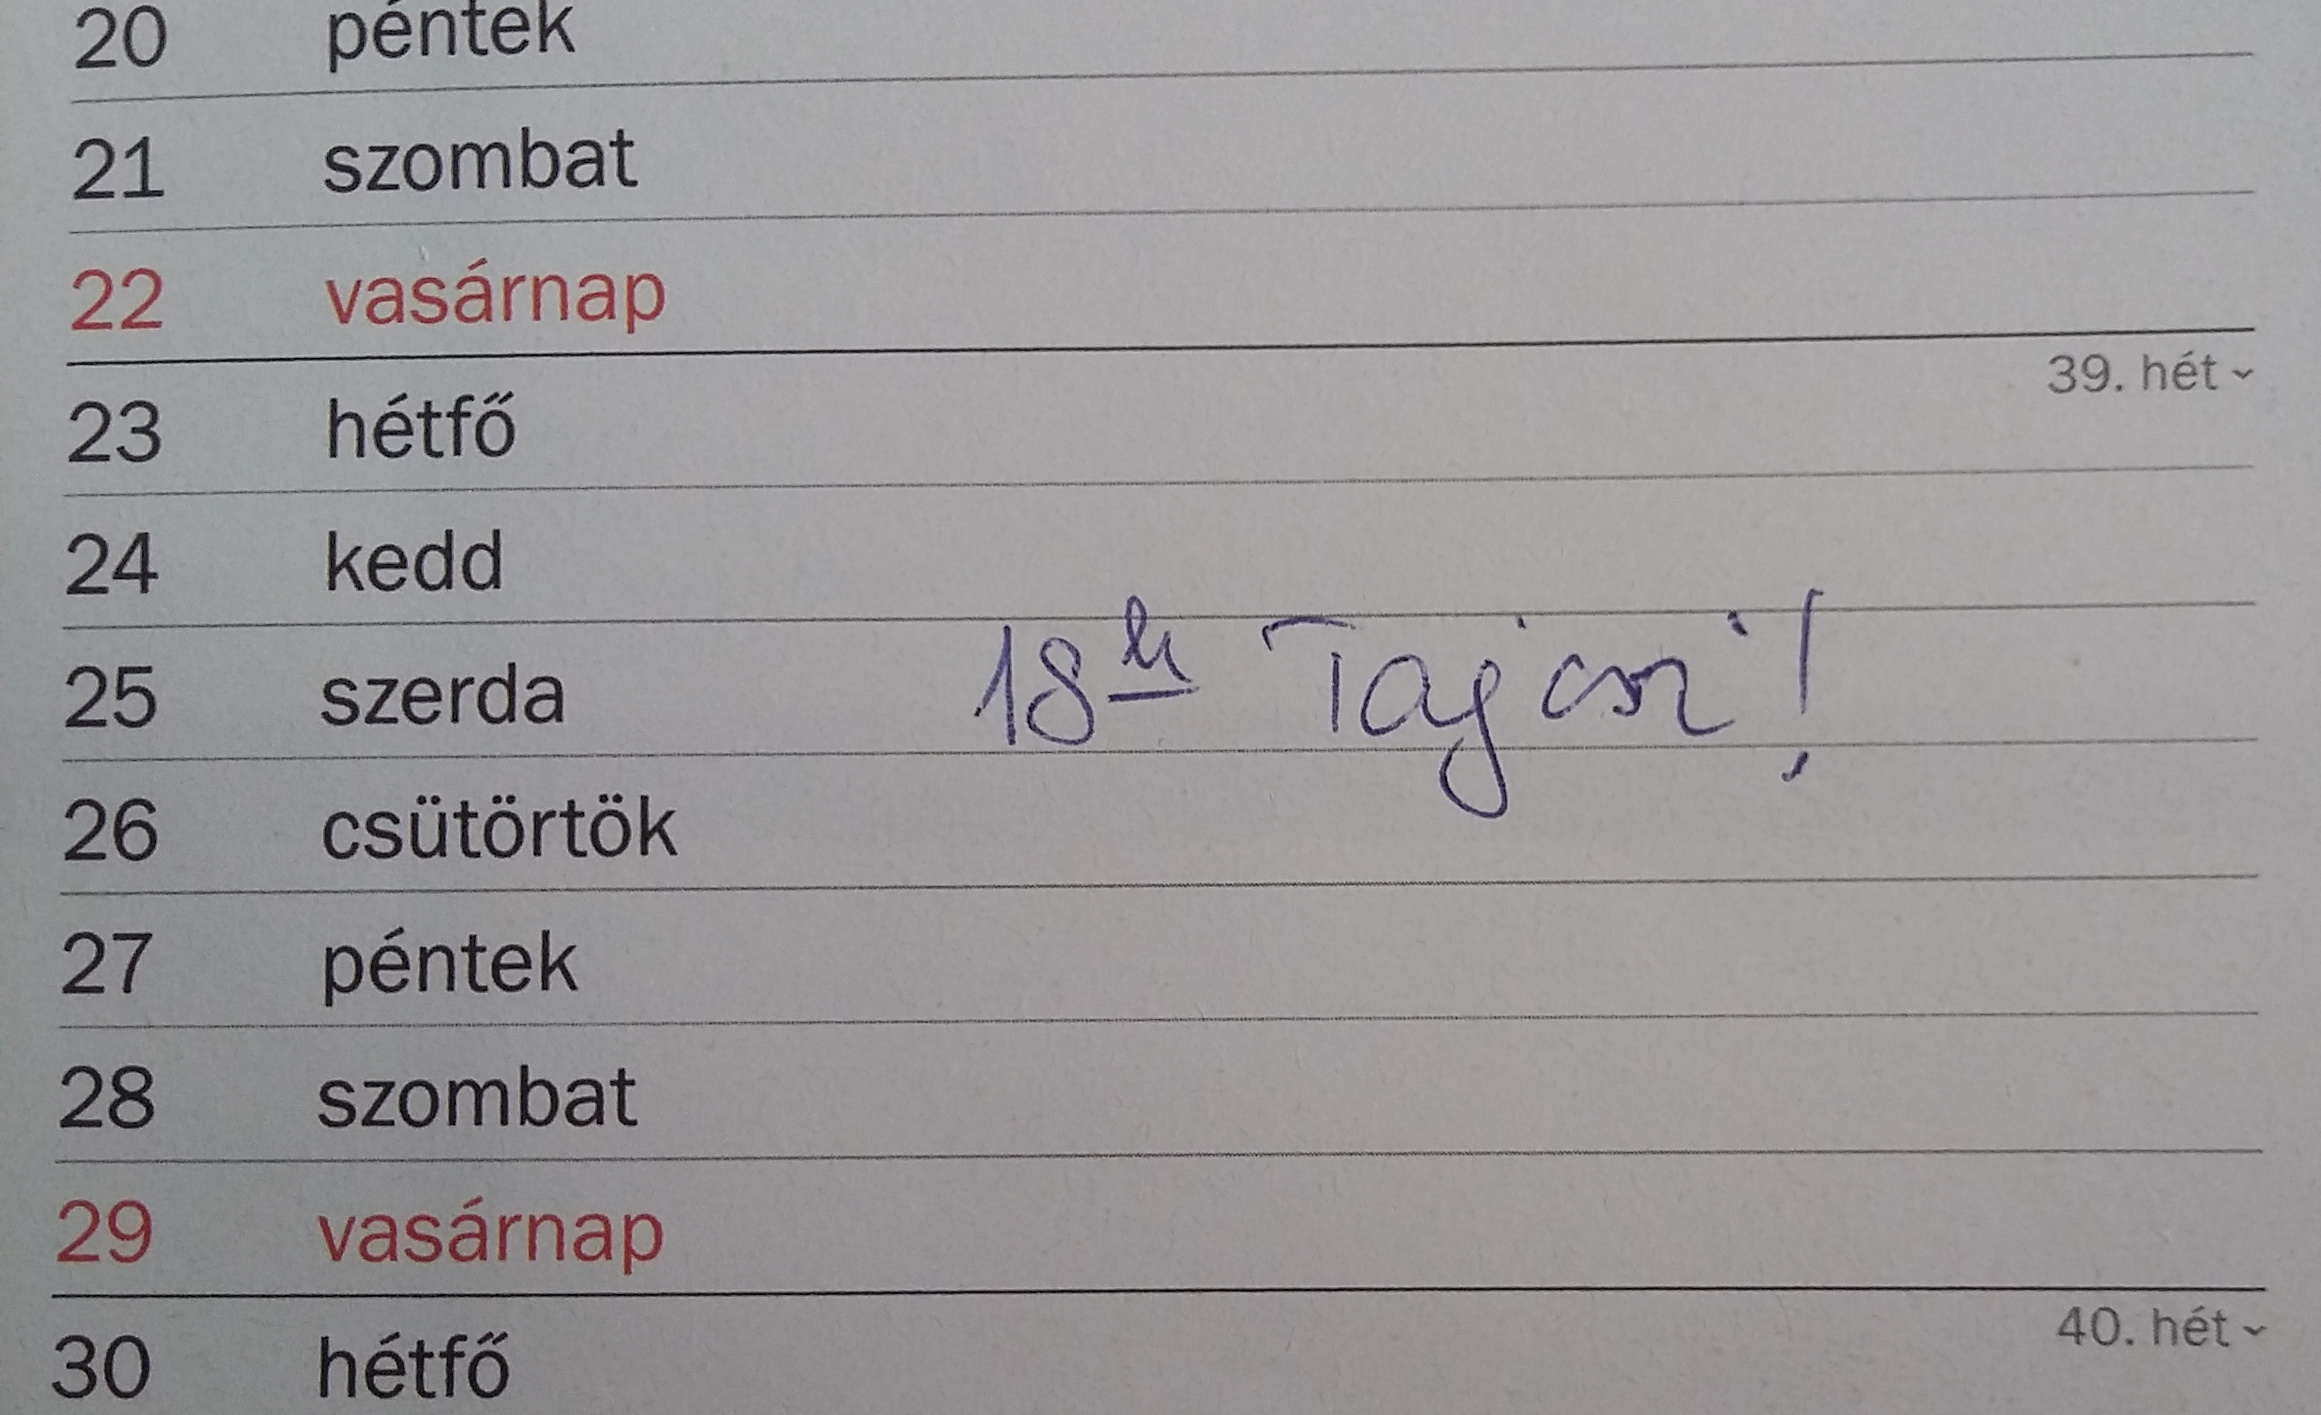 20 péntek
21 szombat
22 vasárnap
39. hét
23 hétfő
24 kedd
25 szerda 18h Tajcsi!
26 csütörtök
27 péntek
28 szombat
29 vasárnap
40. hét
30 hétfő